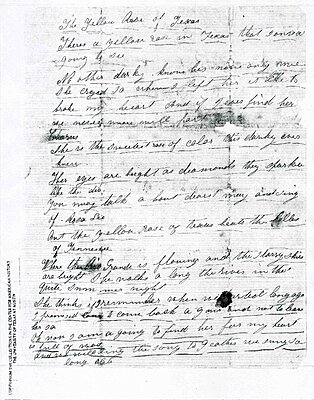 The Yellow Rose of Texas
Theres a yellow rose in Texas that I am a
going to see
No other darky knows her no one only me
She cryed so when I left her it like to
broke my heart And if I ever find her
we never more will part
Chorus
She is the sweetest rose of color this darky ever
knew
Her eyes are bright as diamonds they sparkle
like the dew
You may talk a bout dearest may and sing
of Rosa Lee
But the yellow rose of Texas beats the belles
of Tennessee
Where the Rio Grande is flowing and the starry skies
are bright She walks a long the river in the
quite summer night
She thinks if I remember when we parted long ago
I promised to come back again and not to leave
her so
Oh now I am a going to find her for my heart
is full of woe
and the song to gather we sung so
long ago
COPYPRINT FROM THE COLLECTIONS IN THE CENTER FOR AMERICAN HISTORY
THE UNIVERSITY OF TEXAS AT AUSTIN